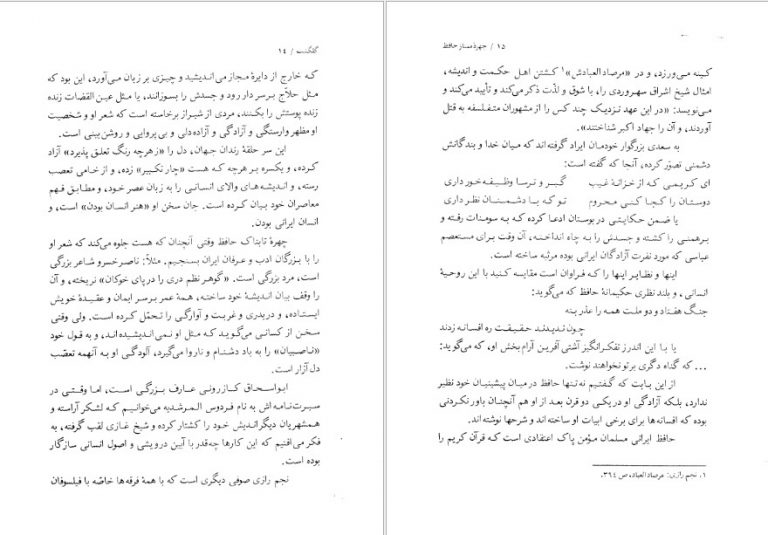 گلگشت / ۱۴
که خارج از دایرهٔ مجاز می‌اندیشید و چیزی بر زبان می‌آورد، این بود که
مثل حلاّج بر سر دار رود و جسدش را بسوزانند، یا مثل عین القضات زنده
زنده پوستش را بکنند، مردی از شیراز برخاسته است که شعر او و شخصیت
او مظهر وارستگی و آزادگی و آزاده‌دلی و بی‌پروایی و روشن‌بینی است.
این سر حلقهٔ رندان جهان، دل را «ز هرچه رنگ تعلق پذیرد» آزاد
کرده، و یکسره بر هرچه که هست «چار تکبیر» زده، و از خامی تعصب
رسته، و اندیشه‌های والای انسانی را به زبان عصر خود، و مطابق فهم
معاصران خود بیان کرده است. جان سخن او «هنر انسان بودن» است، و
انسان ایرانی بودن.
چهرهٔ تابناک حافظ وقتی آنچنان که هست جلوه می‌کند که شعر او
را با بزرگان ادب و عرفان ایران بسنجیم. مثلاً: ناصرخسرو شاعر بزرگی
است، مرد بزرگی است. «گوهر نظم دری را در پای خوکان» نریخته، و آن
را وقف بیان اندیشهٔ خود ساخته، همهٔ عمر بر سر ایمان و عقیدهٔ خویش
ایستاده، و دربدری و غربت و آوارگی را تحمّل کرده است. ولی وقتی
سخن از کسانی می‌گوید که مثل او نمی‌اندیشیده‌اند، و به قول خود
«ناصبیان» را به باد دشنام و ناروا می‌گیرد، آلودگی او به آنهمه تعصّب
دل آزار است.
ابواسحاق کازرونی عارف بزرگی است، اما وقتی در
سیرت‌نامه‌اش به نام فردوس المرشدیه می‌خوانیم که لشکر آراسته و
همشهریان دیگراندیش خود را کشتار کرده و شیخ غازی لقب گرفته، به
فکر می‌افتیم که این کارها چه‌قدر با آیین درویشی و اصول انسانی سازگار
بوده است.
نجم رازی صوفی دیگری است که با همهٔ فرقه‌ها خاصّه با فیلسوفان
۱۵ / چهرهٔ ممتاز حافظ
کینه می‌ورزد، و در «مرصادالعبادش»۱ کشتن اهل حکمت و اندیشه،
امثال شیخ اشراق سهروردی را، با شوق و لذّت ذکر می‌کند و تأیید می‌کند و
می‌نویسد: «در این عهد نزدیک چند کس را از مشهوران متفلسفه به قتل
آوردند، و آن را جهاد اکبر شناختند».
به سعدی بزرگوار خودمان ایراد گرفته‌اند که میان خدا و بندگانش
دشمنی تصوّر کرده، آنجا که گفته است:
ای کریمی که از خزانهٔ غیب گبر و ترسا وظیفه‌خور داری
دوستان را کجا کنی محروم تو که با دشمنان نظر داری
یا ضمن حکایتی در بوستان ادعا کرده که به سومنات رفته و
برهمنی را کشته و جسدش را به چاه انداخته، آن وقت برای مستعصم
عباسی که مورد نفرت آزادگان ایرانی بوده مرثیه ساخته است.
اینها و نظایر اینها را که فراوان است مقایسه کنید با این روحیهٔ
انسانی، و بلند نظری حکیمانهٔ حافظ که می‌گوید:
جنگ هفتاد و دو ملت همه را عذر بنه
چون ندیدند حقیقت ره افسانه زدند
یا با این اندرز تفکرانگیز آشتی آفرین آرام بخش او، که می‌گوید:
... که گناه دگری بر تو نخواهند نوشت.
از این بابت که گفتیم نه‌تنها حافظ در میان پیشینیان خود نظیر
ندارد، بلکه آزادگی او در یکی دو قرن بعد از او هم آنچنان باور نکردنی
بوده که افسانه‌ها برای برخی ابیات او ساخته‌اند و شرحها نوشته‌اند.
حافظ ایرانی مسلمان مؤمن پاک اعتقادی است که قرآن کریم را
۱. نجم رازی: مرصاد العباد، ص ۳۹۴.